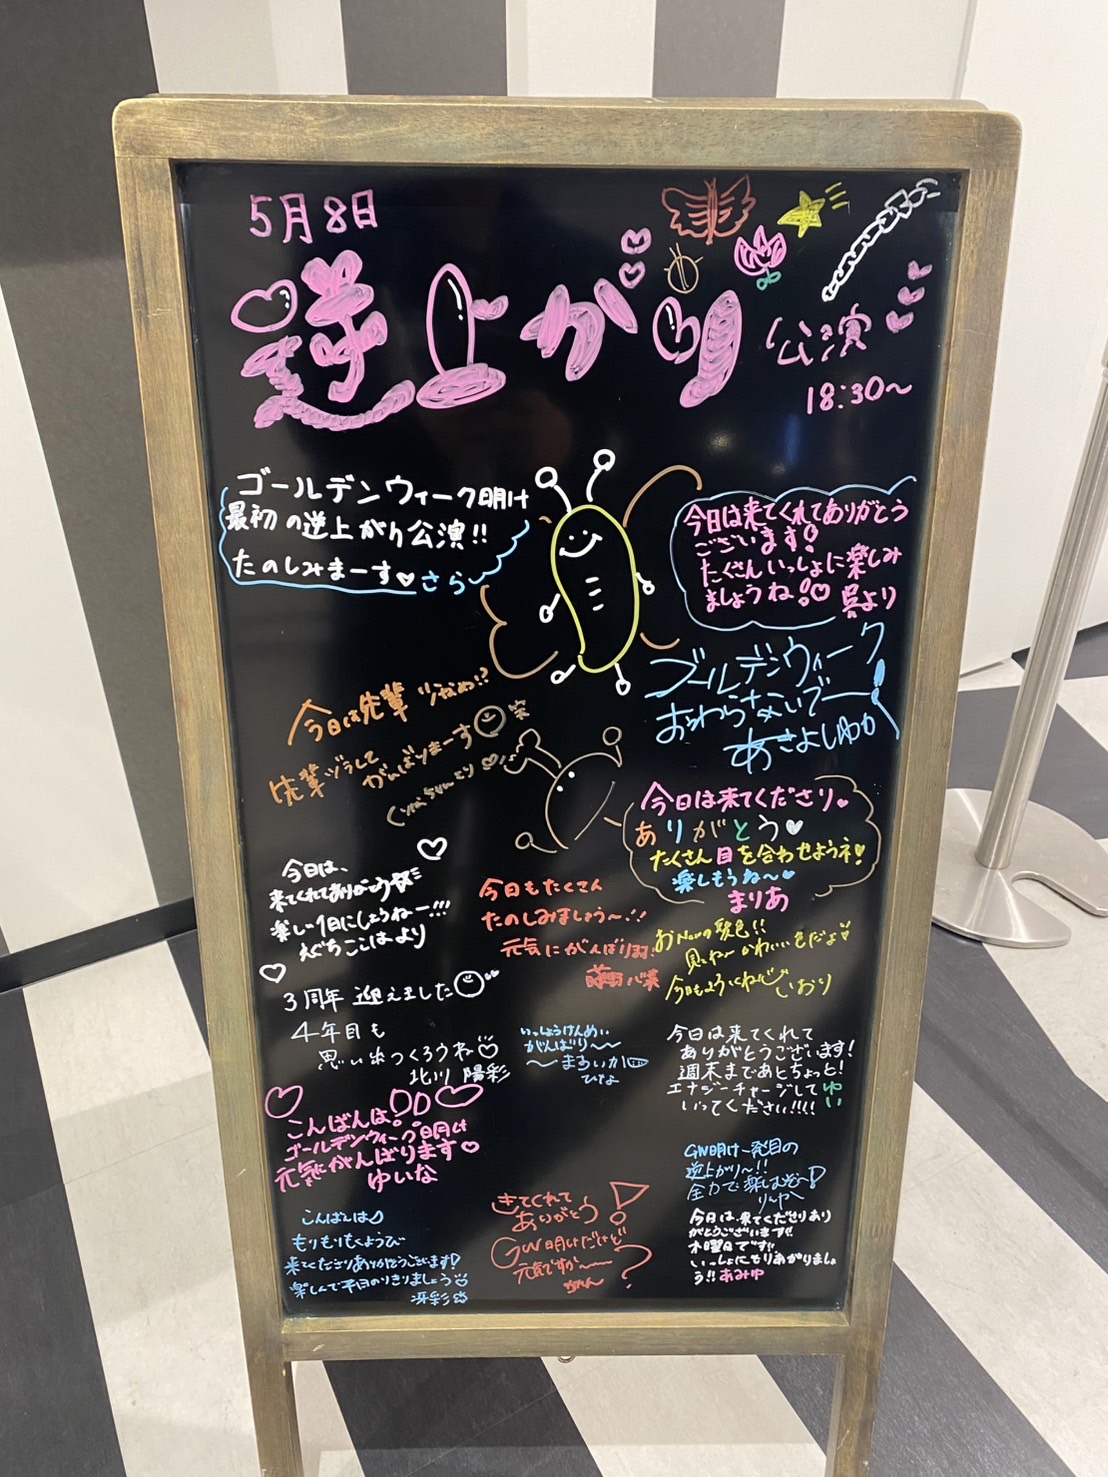 5月8日
逆上がり
公演
18:30〜
ゴールデンウィーク明け
最初の逆上がり公演!!
たのしみまーす♡ さら
今日は来てくれてありがとう
ございます!
たくさんいっしょに楽しみ
ましょうね!♡ 呉より
ゴールデンウィーク
おわらないでー!
あさよしゆか
今日は先輩少なめ!?
先輩ヅラして
がんばりまーす 笑
今日は来てくださり♥
ありがとう♥
たくさん目を合わせようネ!
楽しもうね〜♥
まりあ
今日は、
来てくれてありがとう
楽しい1日にしようねー!!!
えぐちこはより
今日もたくさん
たのしみましょう〜!!
元気にがんばります!
藤野心菜
おNewの髪色!!
見てね〜かわいい色だよ
今日もよろしくね いおり
3周年迎えました
4年目も
思い出つくろうね
北川 陽彩
いっしょうけんめい
がんばり〜〜
〜まあいか
ひなよ
今日は来てくれて
ありがとうございます!
週末まであとちょっと!
エナジーチャージして
いってください!!!! ゆい
こんばんは!
ゴールデンウィーク明け
元気がんばります♡
ゆいな
GW明け一発目の
逆上がり〜!!
全力で楽しむぞ〜!
きてくれて
ありがとう!
GW明けだけど
元気ですか〜?
今日は、来てくださりあり
がとうございます!!
木曜日です!!
いっしょにもりあがりましょ
う!! あみゆ
こんばんは♪
もりもりもくようび
来てくださりありがとうございます!
楽しんで平日のりきりましょう
冴彩